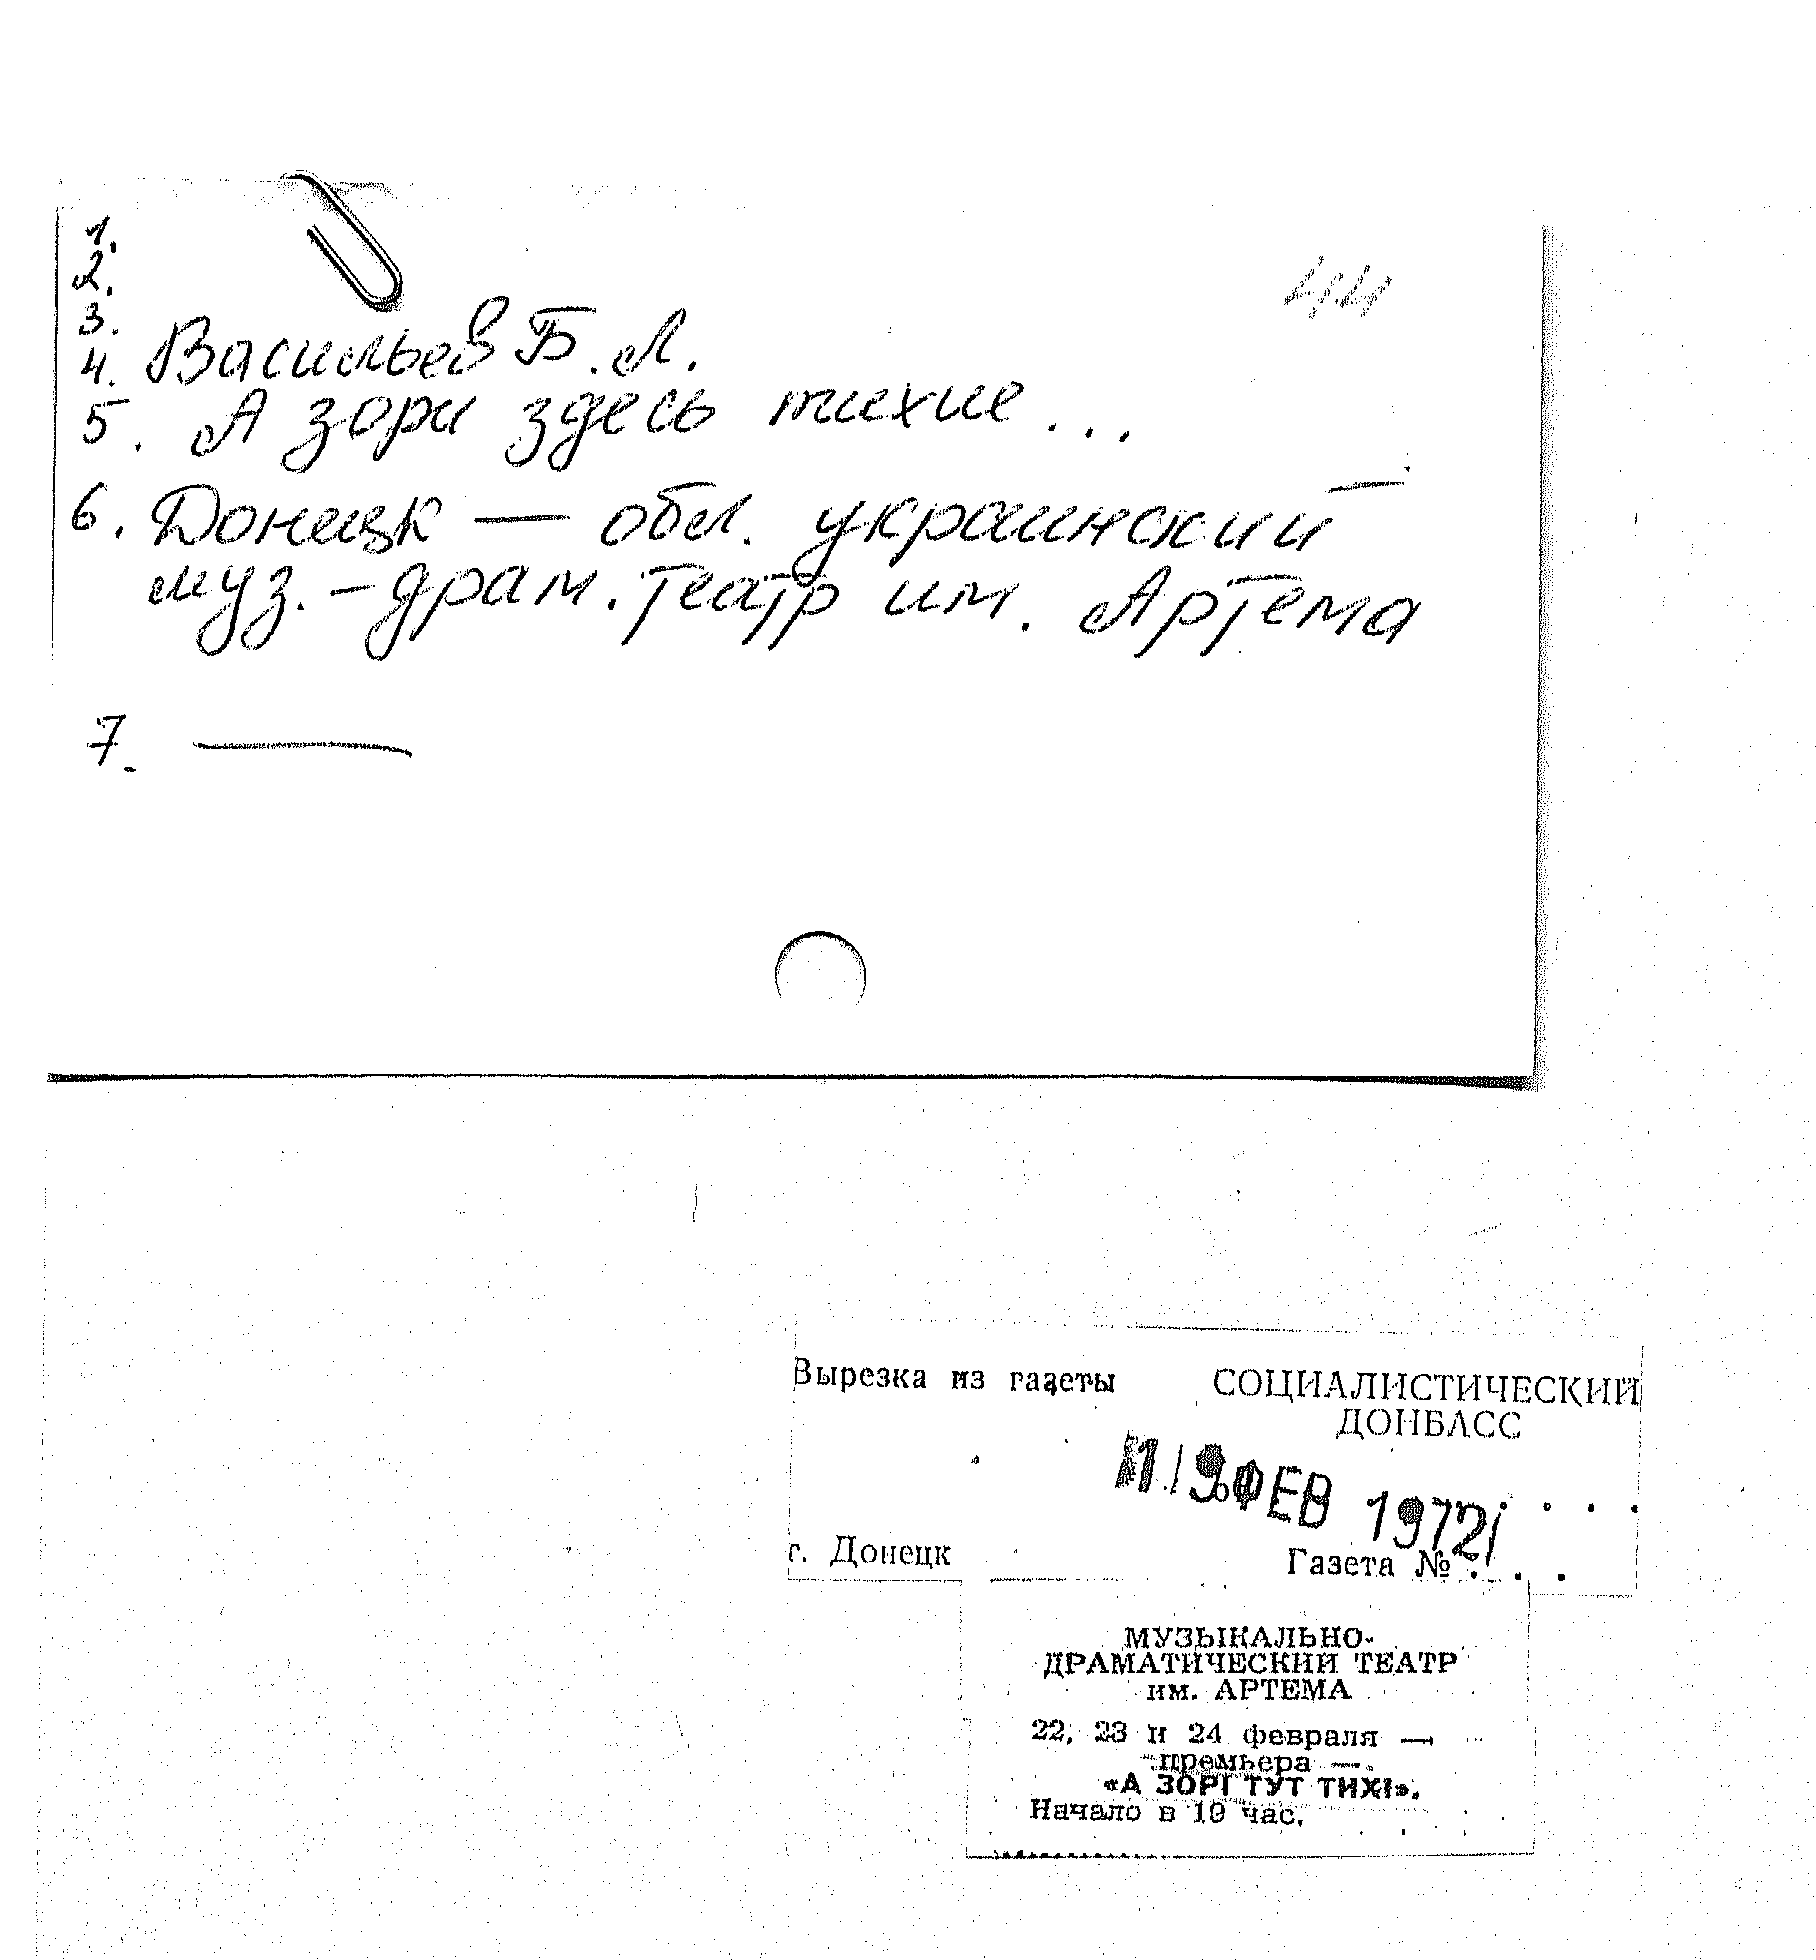 1.
2.
3.
4. Васильев Б.Л.
5. А зори здесь тихие...
6. Донецк — обл. украинский
муз.-драм. театр им. Артема
7. —
Вырезка из газеты СОЦИАЛИСТИЧЕСКИЙ
ДОНБАСС
ФЕВ 1972
г. Донецк Газета № . . .
МУЗЫКАЛЬНО-
ДРАМАТИЧЕСКИЙ ТЕАТР
им. АРТЕМА
22, 23 и 24 февраля —
премьера —
«А ЗОРІ ТУТ ТИХІ».
Начало в 19 час.